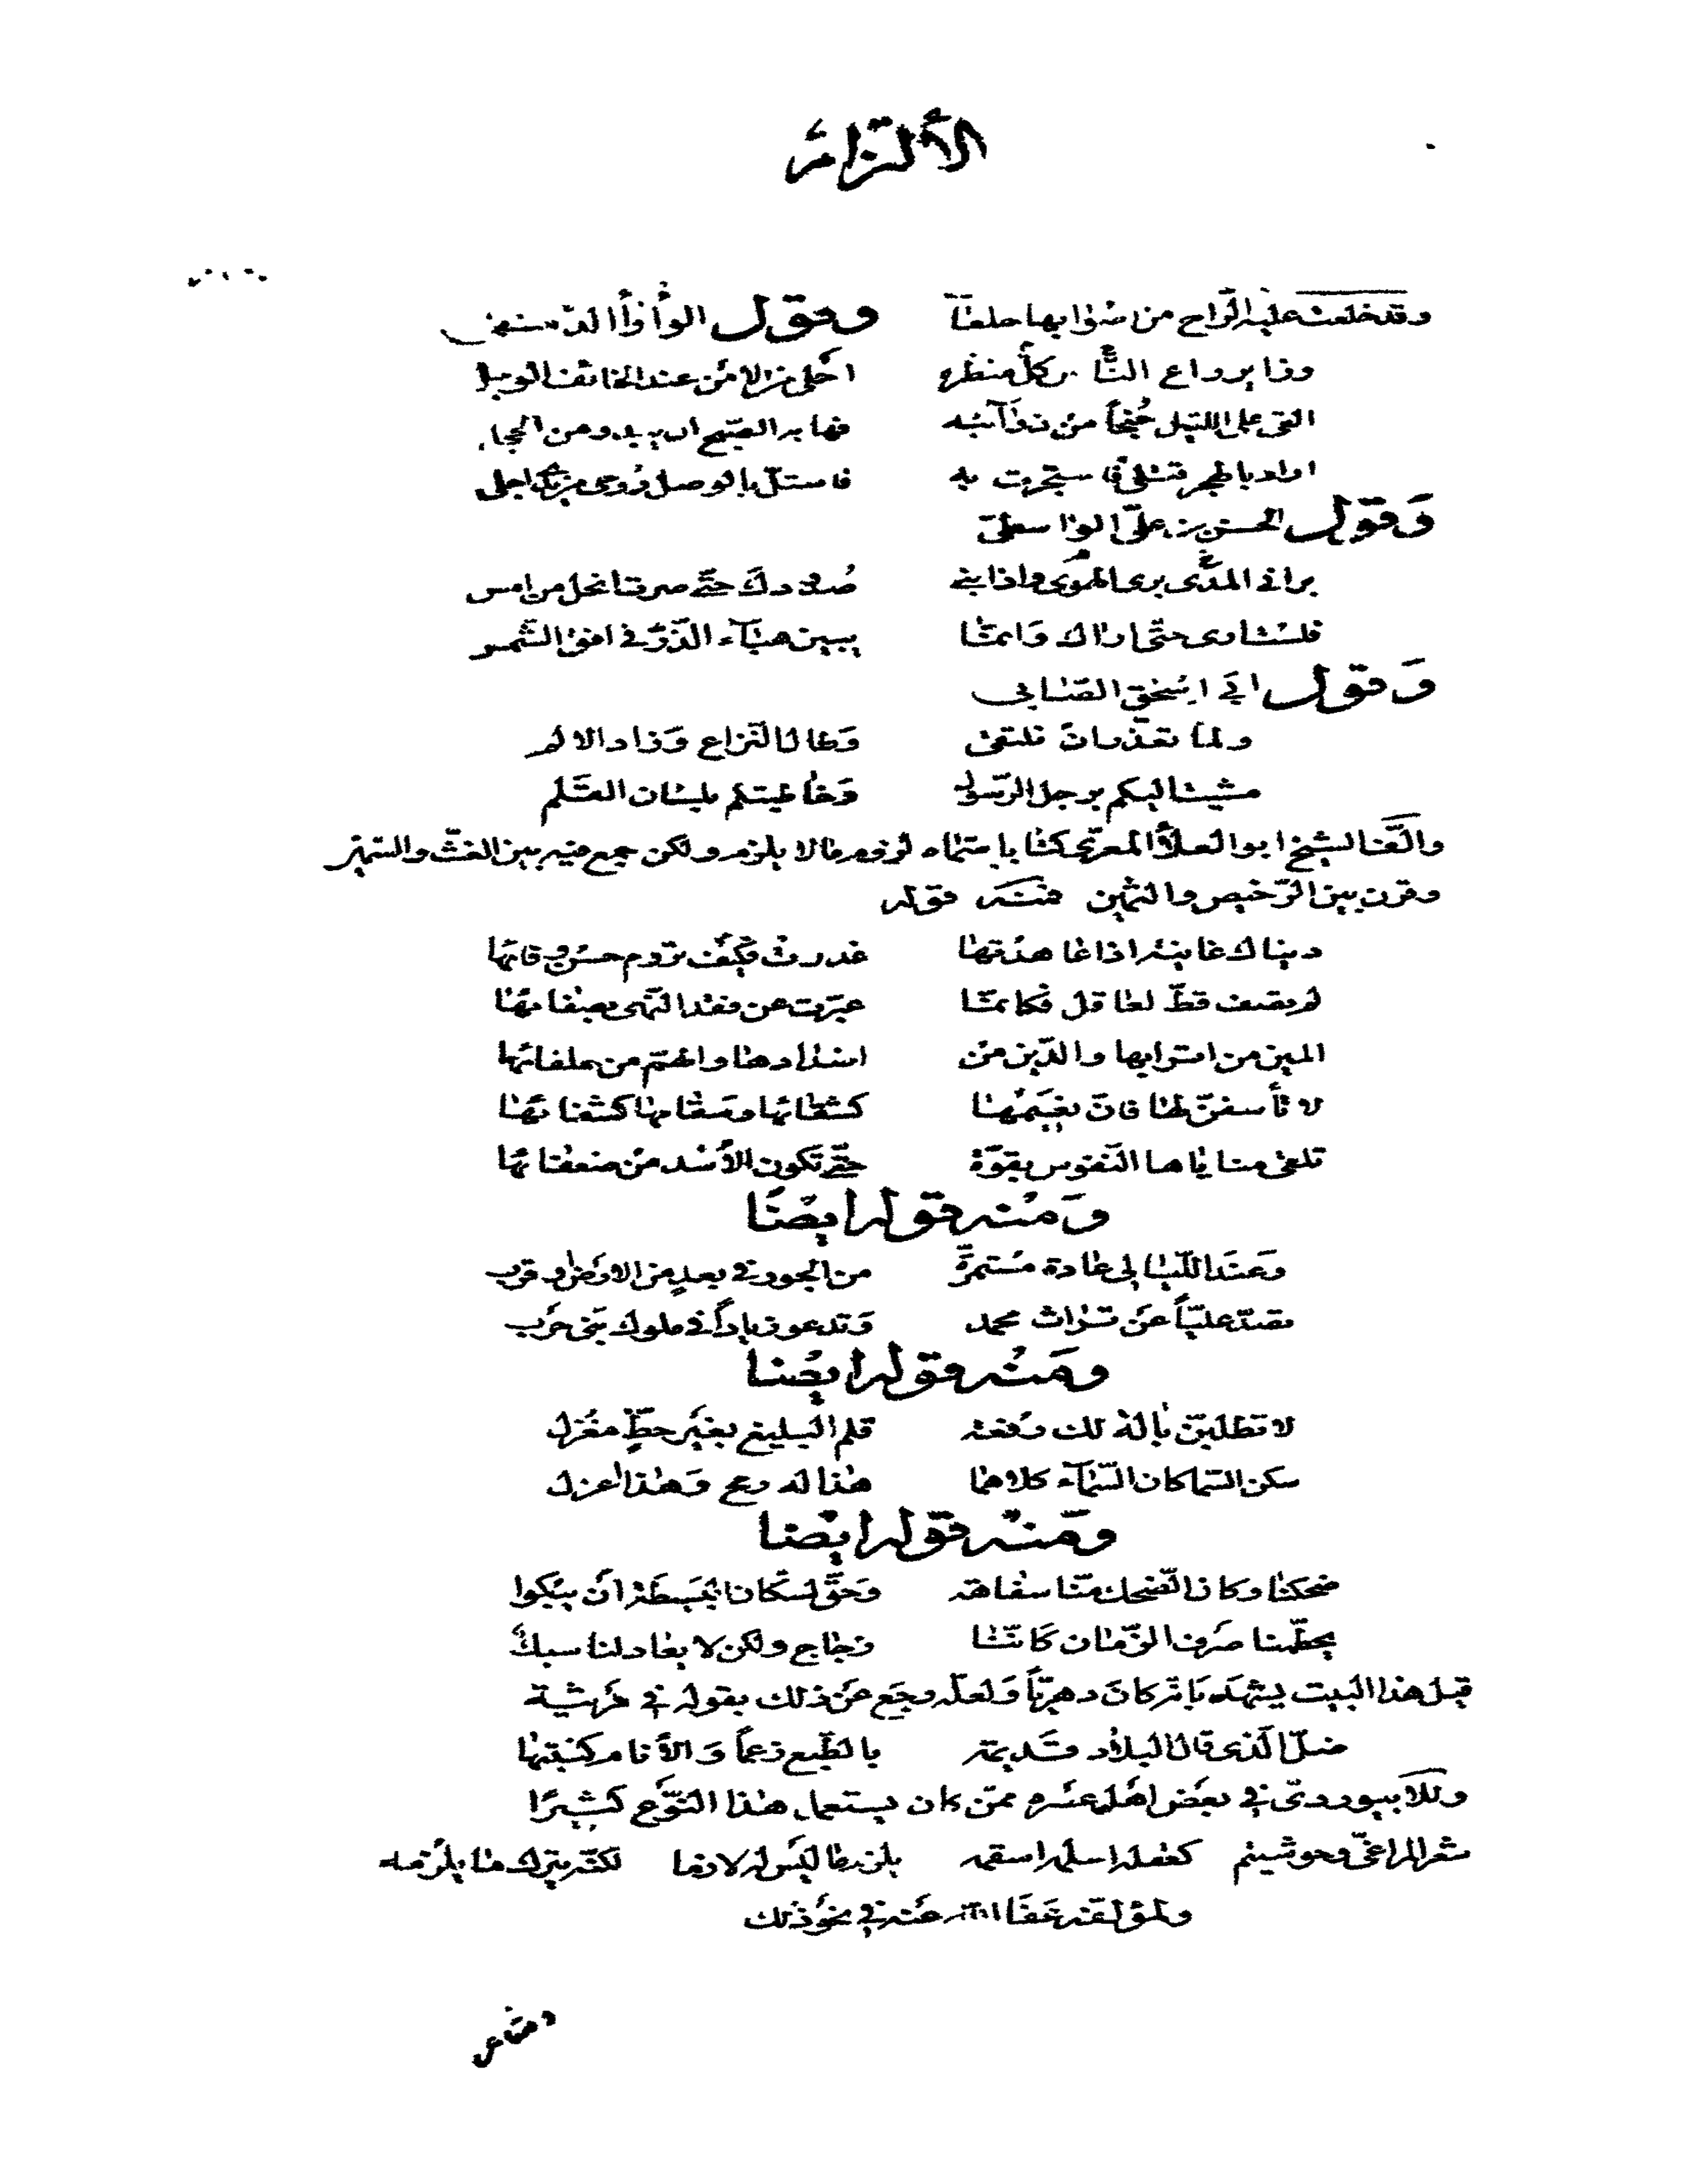 الألتزام
وقد خلعت عليه الراح من أثوابها خلعا وقول الوأواء الدمشقي
وزاير راع كل منظره احلى من الامن عند الخائف الوجل
القى على الليل جنحا من ذوآئبه فهابه الصبح ان يبدو من الخجل
اراد بالهجر قتلي فاستجرت به فاستلّ بالوصل روحي من يدي اجلي
وَقول الحسن بن علي الواسطي
براني الهوى بري المدى واذابني صُدودكَ حتّى صرت انحل من امس
فلست ارى حتّى اراك وَانما يبين هبآء الذّرّ في افق الشّمس
وَقول ابي اسحق الصّابي
ولما تعذّر ان نلتقي وَطال النّزاع وَزاد الالم
مشيت اليكم برجل الرّسول وَخاطبتكم بلسان القَلَم
والّف الشيخ ابو العلاء المعرّي كتابا سمّاه لزوم ما لا يلزم ولكن جمع فيه بين الغثّ والسّمين
وقرن بين الرّخيص والثمين فمنه قوله
دنياك غانية اذا عاهدتها غدرت فكيف تروم حسن وفائها
لم يصف قطّ لعاقل فكانما عبّرت عن فقد النّهى بصفائها
المين من اترابها والدّين من اضدادها والهمّ من حلفائها
لا تأسفنّ لها فانّ نعيمها كشقائها وسقامها كشفائها
تلقى مناياها النّفوس بقوّة حتّى تكون الأسد من ضعفائها
وَمنه قوله ايضًا
وَعند اللّيالي عادة مُستمرّة من الجور في بعدٍ من الارض او قرب
تصدّ عليّاً عن تراث محمد وَتدعو زياداً في ملوك بني حَرب
ومَنه قوله ايضا
لا تطلبنّ بآلة لك رفعة قلم البليغ بغير حظٍّ مغزل
سكن السّماكان السّمآء كلاهما هذا له رمح وَهذا اعزل
ومَنه قوله ايضا
ضحكنا وكان الضّحك منّا سفاهة وَحقّ لسكّان البَسيطة ان يبكوا
يحطّمنا صَرف الزّمان كَانّنا زجاج ولكن لا يعاد لنا سبك
قيل هذا البيت يشهد بَانّه كانَ دهريّاً وَلعلّه رجَع عَن ذلك بقوله في مرثية
ضلّ الّذي قال البلاد قَديمة بالطّبع زعماً وَالأنام كنبتها
وللابيوردىّ في بعض اهل عصره ممّن كان يستعمل هذا النّوع كثيرًا
شعر المراغيّ وحوشيتم كعقله اسلمه اسقمه يلزم ما ليس له لازما لكنّه يترك ما يلزمه
ولمؤلفه عَفَا اللّه عنه في نحو ذلك